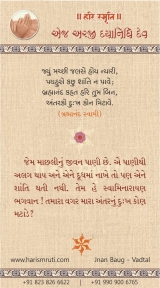 ॥ હરિ સ્મૃતિ ॥
એજ અરજી દયાનિધિ દેવ
જ્યું મચ્છી જલસે હોય ન્યારી,
પયહુસે કછુ શાંતિ ન પાવે;
બ્રહ્માનંદ કહત હરિ તુમ બિન,
અંતરકી દુઃખ કૌન મિટાવે.
(બ્રહ્માનંદ સ્વામી)
જેમ માછલીનું જીવન પાણી છે. એ પાણીથી
અલગ થાય અને એને દૂધમાં નાખે તો પણ એને
શાંતિ થતી નથી. તેમ હે સ્વામિનારાયણ
ભગવાન ! તમારા વગર મારા અંતરનું દુઃખ કોણ
મટાડે?
www.harismruti.com
Jnan Baug - Vadtal
+91 823 826 6622 | +91 990 900 6765